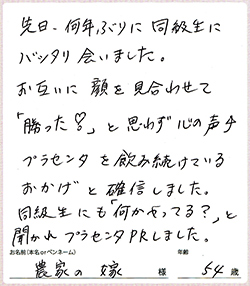 先日、何年ぶりに 同級生に
バッタリ 会いました。
お互いに 顔を見合わせて
「勝った♡」と思わず心の声が
プラセンタを飲み続けている
おかげと確信しました。
同級生にも「何かやってる?」と
聞かれプラセンタPRしました。
お名前(本名orペンネーム) 年齢
農家の嫁 様 54 歳